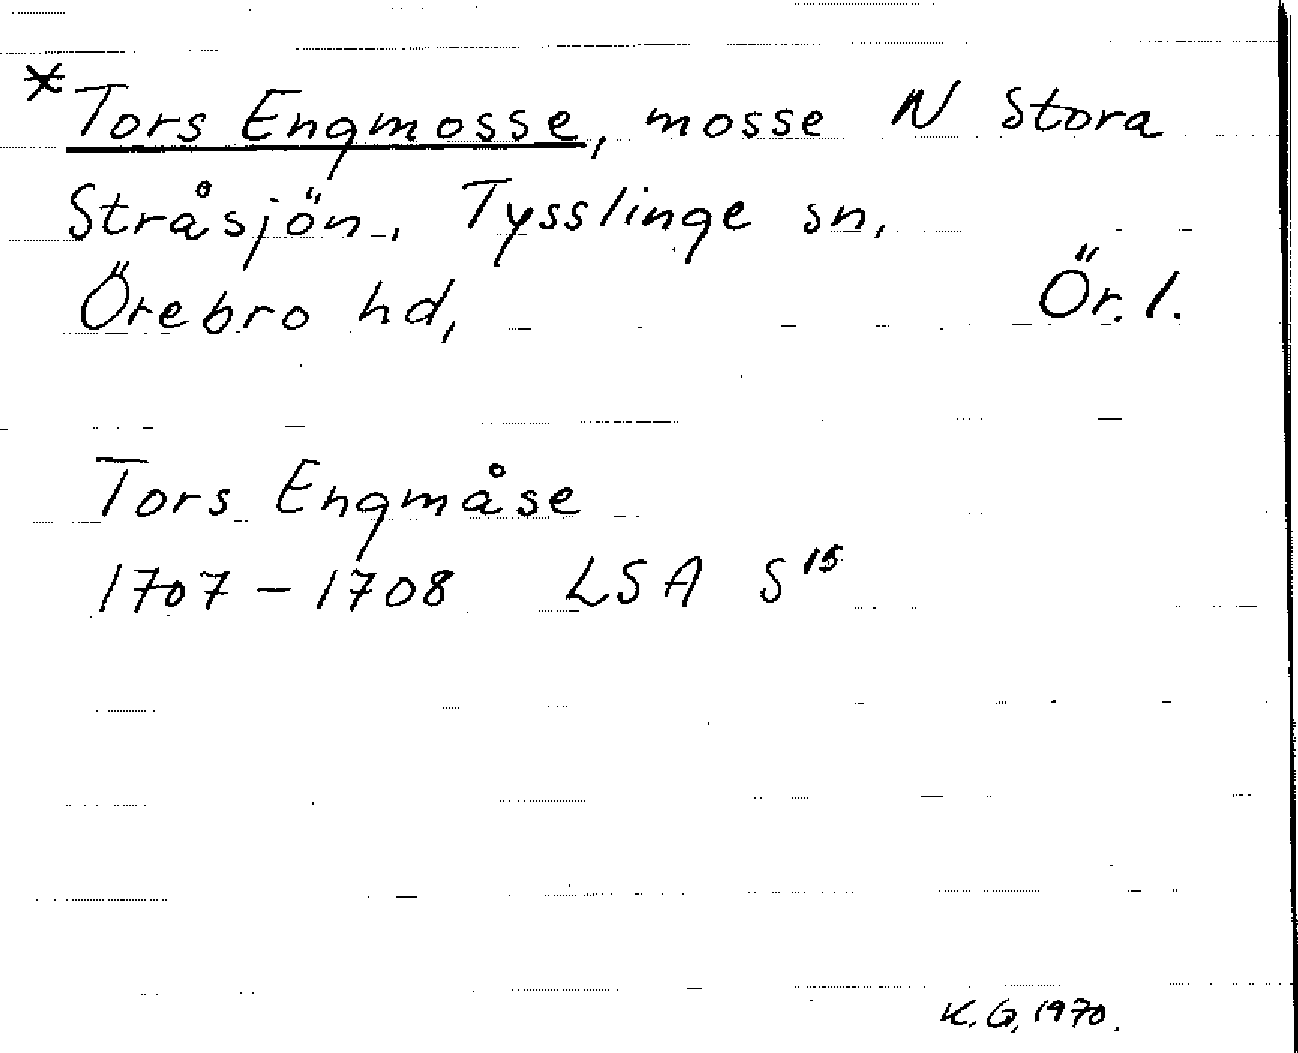 * Tors Engmosse, mosse N Stora
Stråsjön, Tysslinge sn,
Örebro hd, Ör. l.
Tors Engmåse
1707-1708 LSA S15
K.G, 1970.